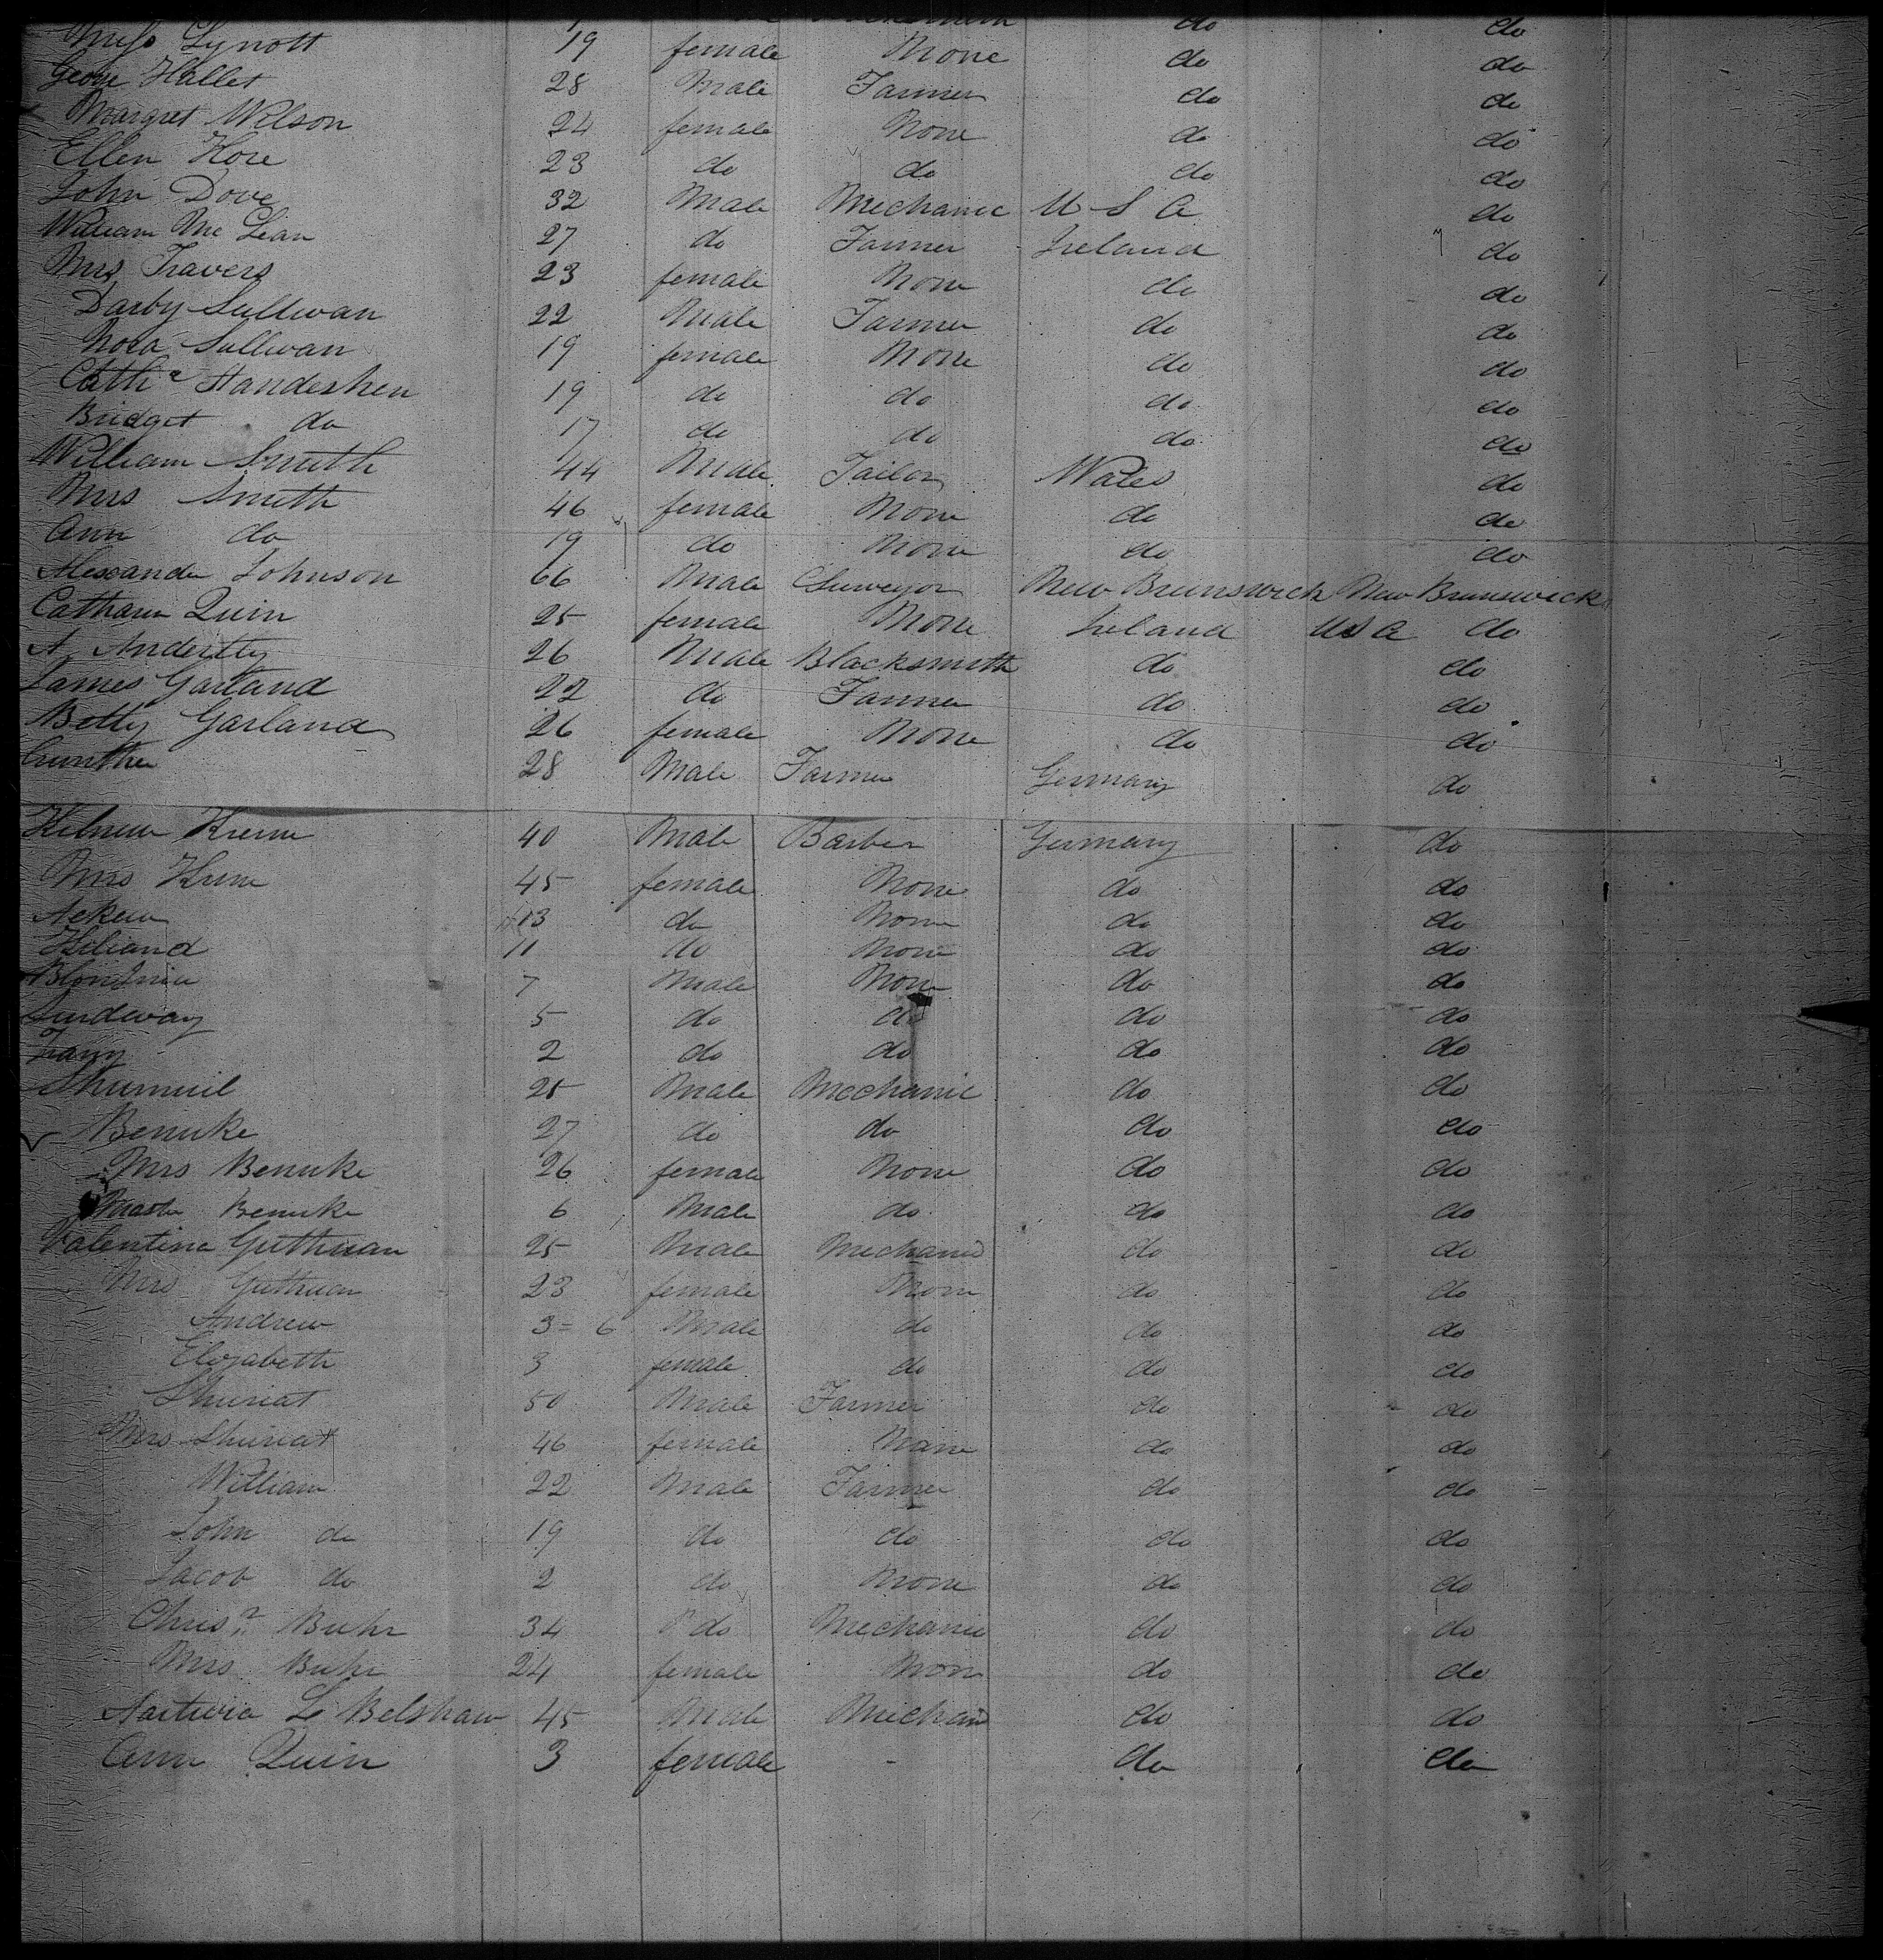 do do
Miss Lynott 19 female None do do
George Hallet 28 Male Farmer do do
Margret Wilson 24 female None do do
Ellen Hore 23 do do do do
John Dove 32 Male Mechanic U S A do
William Mc Lean 27 do Farmer Ireland do
Mrs Travers 23 female None do do
Darby Sullivan 22 Male Farmer do do
Nora Sullivan 19 female None do do
Cath^a Handeshen 19 do do do do
Bridget do 17 do do do do
William Smith 44 Male Tailor Wales do
Mrs Smith 46 female None do do
Ann do 19 do None do do
Alexander Johnson 66 Male Surveyor New Brunswick New Brunswick
Catharin Quin 25 female None Ireland USA do
A 26 Male Blacksmith do do
James Garland 22 do Farmer do do
Betty Garland 26 female None do do
Gunther 28 Male Farmer Germany do
40 Male Barber Germany do
Mrs 45 female None do do
13 do None do do
11 do None do do
7 Male None do do
5 do do do do
2 do do do do
25 Male Mechanic do do
Benuke 27 do do do do
Mrs Benuke 26 female None do do
Master Benuke 6 Male do do do
Valentine Guthman 25 Male Mechanic do do
Mrs Guthman 23 female None do do
Andrew 3 = 6 Male do do do
Elizabeth 3 female do do do
Shuriat 50 Male Farmer do do
Mrs Shuriat 46 female None do do
William 22 Male Farmer do do
John do 19 do do do do
Jacob do 2 do None do do
Chris^n Buhr 34 do Mechanic do do
Mrs Buhr 24 female None do do
Le Belshaw 45 Male Mechanic do do
Ann Quin 3 female - do do